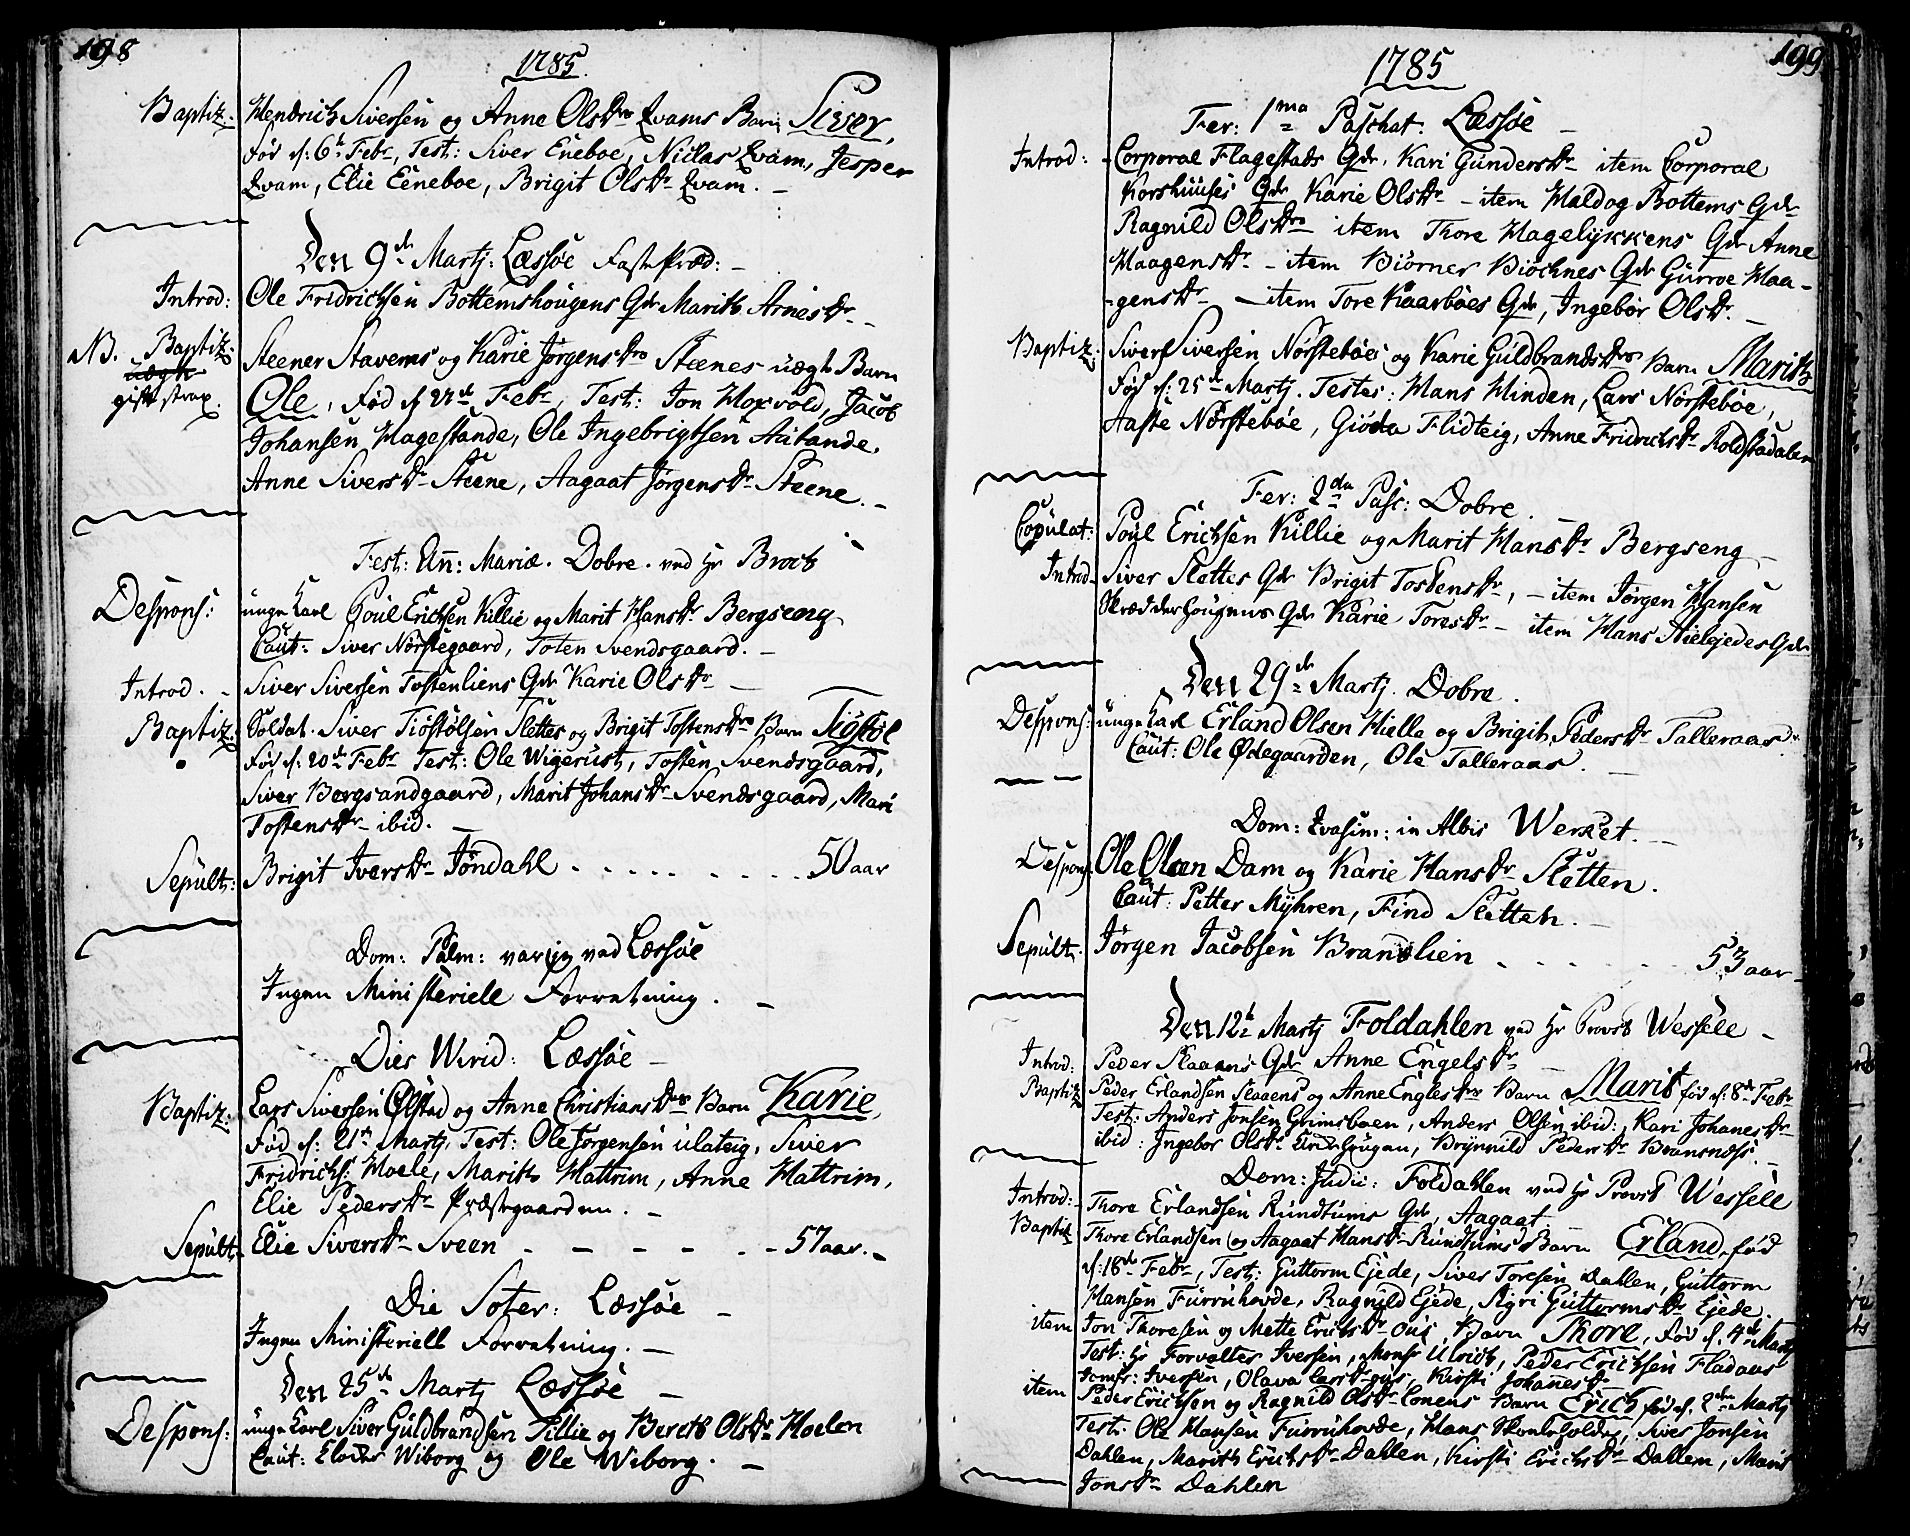 198
1785.
Baptiz: Hendrich Siversen og Anne Olsdr Qvams Barn Siver,
fød d: 6t Febr, Test: Siver Eneboe, Niclas Qvam, Jesper
Qvam, Elie Eeneboe, Brigit Olsdr Qvam. –
Den 9de Martj: Læssøe Fastepræd: –
Introd: Ole Fridrichsen Bottemshougens Qde Marith Arnesdr –
NB. Baptiz: Steener Stavems og Karie Jørgensdr Steenes uægte Barn
gift strax. Ole, fød d 22de Febr, Test: Jon Hoxvold, Jacob
Johansen Hagestande, Ole Ingebrigtsen
Anne Siversdr Steene, Aagaat Jørgensdr Steene. –
Fest: An: Mariæ. Dobre. ved Hr Brock
Despons: unge Karl Poul Erichsen Killie og Marit Hansdr Bergseng
Caut: Siver Nørstegaard, Tosten Svendsgaard. –
Introd. – Siver Siversen Tostenliens Qde Karie Olsdr –
Baptiz: Soldat. Siver Tiøstølsen Slettes og Brigit Tostensdr Barn Tiøstøl
fød d: 20de Febr Test: Ole Wigerust, Tosten Svendsgaard,
Siver Borgsandgaard, Marit Johansdr Svendsgaard, Mari
Tostensdr ibid. –
Sepult: Brigit Iversdr Jøndahl . . . . . . . . . 50 aar
Dom: Palm: ved Læssøe
Ingen Ministeriell Forretning. –
Dies Virid: Læssøe –
Baptiz: Lars Siversen Ølstad og Anne Christiansdr Barn Karie,
fød d: 21de Martj, Test: Ole Jørgensen Ulateig, Siver
Fridrichs: Hoele, Marith Hattrim, Anne Hattrim,
Elie Pedersdr Præstegaarden. –
Sepult. Elie Siversdr Sveen – – – – – – 57 aar. –
Die Soter: Læssøe –
Ingen Ministeriell Forretning. –
Den 25de Martj Læssøe –
Despons: unge Karl Siver Guldbrandsen Tillie og Bereth Olsdr Hoelen
Caut: Wiborg og Ole Wiborg. –
199
1785
Fer: 1ma Paschat: Læssøe –
Introd: Corporal Flagestads Qde, Kari Gundersdr – item Corporal
Korshuuses Qde Karie Olsdr – item Haldog Bottems Qde
Ragnild Olsdr item Thore Hagelykkens Qde Anne
Haagensdr – item Biørner Biøchnes Qde Gurroe Haa-
-gensdr – item Tore Kaarbøes Qde, Ingebor Olsdr. –
Baptiz: Siver Siversen Nørstebøes og Karie Guldbrandsdr Barn Marith
fød d: 25de Martj. Testes: Hans Hinden, Lars Nørstebøe,
Aaste Nørstebøe, Giøda Flidteig, Anne Fridrichsdr Roldstadalen
Fer: 2da Pasc: Dobre.
Copulat: Poul Erichsen Killie og Marit Hansdr Bergseng –
Introd – Siver Slettes Qde Brigit Tostensdr, – item Jørgen Hansen
Skrædderhougens Qde Karie Toresdr – item Hans Qde
Den 29de Martj. Dobre.
Despons: unge Karl Erland Olsen Hielle og Brigit Pedersdr Talleraas.
Caut: Ole Ødegaarden, Ole Talleraas. –
Dom: Qvasim: in Albis Werket. –
Despons. Ole Olsen Dam og Karie Hansdr Sletten.
Caut: Petter Myhren, Find Sletten. –
Sepult. Jørgen Jacobsen Brandlien – . . . . 53 aar –
Den 12te Martj Foldahlen ved Hr Provst Wessele –
Introd: Peder Slaaens Qde Anne Engelsdr –
Baptiz Peder Erlandsen Slaaens og Anne Englesdr Barn Marit fød d: 8de Febr
Test: Anders Jonsen Grimsboen, Anders Olsen ibid:, Kari Johanesdr
ibid: Ingebor Olsdr Brynnild Pedersdr
Dom: Judic: Foldahlen ved Hr Provst Wessele
Introd: Thore Erlandsen Rundtums Qde, Aagaat.
Baptiz Thore Erlandsen og Aagaat Hansdr Rundtums Barn Erland, fød
d: 18de Febr, Test: Guttorm Ejede, Siver Toresen Dahlen, Guttorm
Hansen Furruhovde, Ragnild Ejede, Sigri Guttormsdr Ejede.
item Jon Thoresen og Mette Erichsdr Barn Thore, fød d. 4de Martj
Test: Hr Forvalter Iversen, Monsr Ulrich, Peder Erichsen Fladaas
Jomfr: Iversen, Olava Larsdr Kirsti Johannesdr
item Peder Erichsen og Ragnild Olsdr Barn Erich fød d. 2den Martj
Test: Ole Hansen Furruhovde, Hans Siver Jonsen
Dahlen, Marith Erichsdr Dahlen, Kirsti Erichsdr Dahlen, Marit
Jonsdr Dahlen